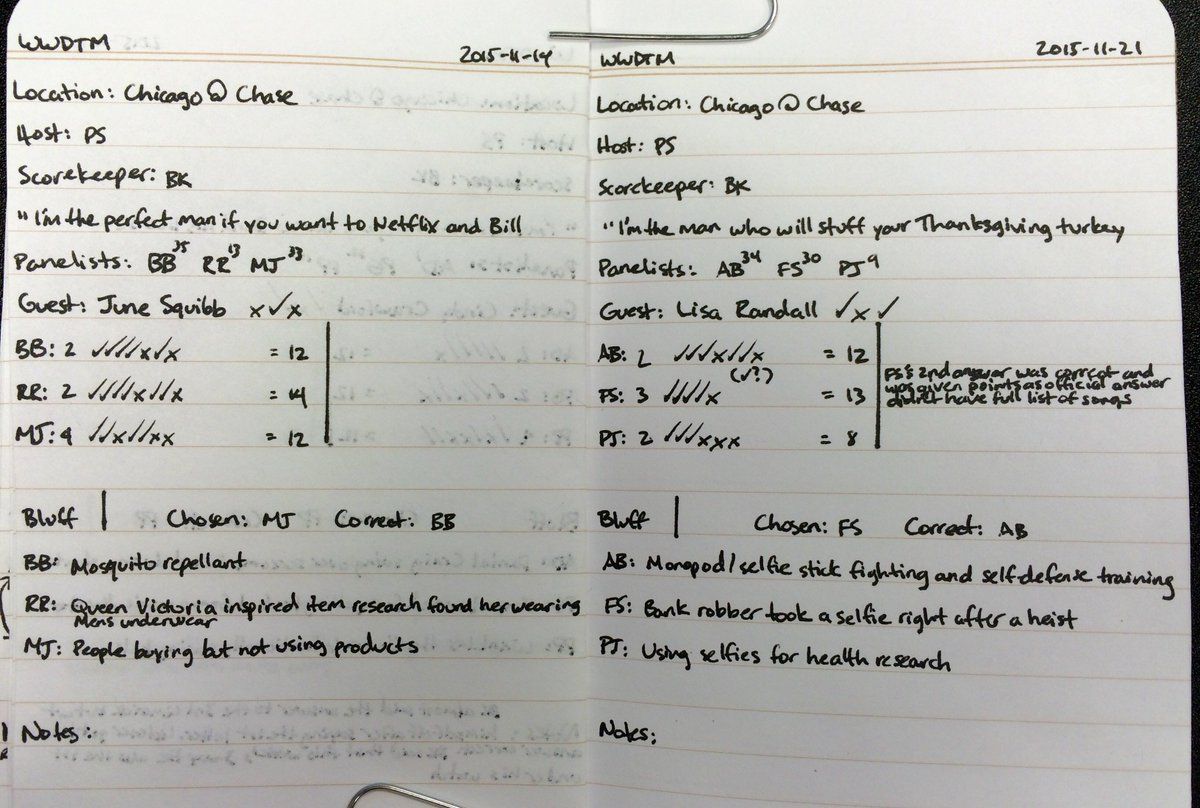 WWDTM
2015-11-14
Location: Chicago @ Chase
Host: PS
Scorekeeper: BK
"I'm the perfect man if you want to Netflix and Bill
Panelists: BB35 RR13 MJ33
Guest: June Squibb x✓x
BB: 2 ✓✓✓✓x✓x = 12
RR: 2 ✓✓✓✓x✓✓x = 14
MJ: 4 ✓✓x✓✓xx = 12
Bluff | Chosen: MJ Correct: BB
BB: Mosquito repellant
RR: Queen Victoria inspired item research found her wearing
Mens underwear
MJ: People buying but not using products
Notes:
WWDTM
2015-11-21
Location: Chicago @ Chase
Host: PS
Scorekeeper: BK
"I'm the man who will stuff your Thanksgiving turkey
Panelists: AB34 FS30 PJ9
Guest: Lisa Randall ✓x✓
AB: 2 ✓✓✓x✓✓x = 12
(✓?)
FS: 3 ✓✓✓✓x = 13
PJ: 2 ✓✓✓xxx = 8
FS's 2nd answer was correct and
was given points as official answer
didn't have full list of songs
Bluff | Chosen: FS Correct: AB
AB: Monopod/selfie stick fighting and self-defense training
FS: Bank robber took a selfie right after a heist
PJ: Using selfies for health research
Notes: